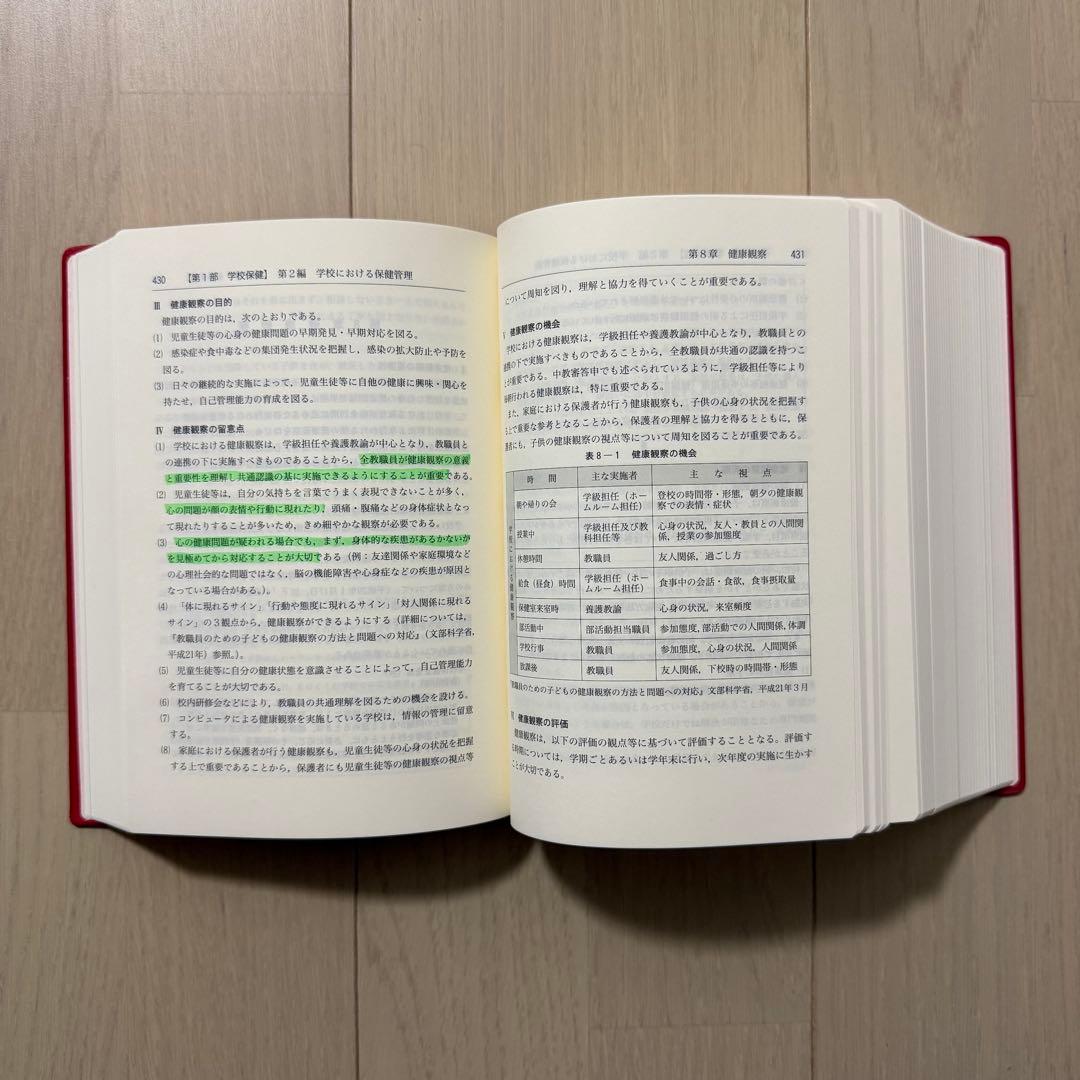 430 【第1部 学校保健】 第2編 学校における保健管理
Ⅲ 健康観察の目的
健康観察の目的は，次のとおりである。
(1) 児童生徒等の心身の健康問題の早期発見・早期対応を図る。
(2) 感染症や食中毒などの集団発生状況を把握し，感染の拡大防止や予防を
図る。
(3) 日々の継続的な実施によって，児童生徒等に自他の健康に興味・関心を
持たせ，自己管理能力の育成を図る。
Ⅳ 健康観察の留意点
(1) 学校における健康観察は，学級担任や養護教諭が中心となり，教職員と
の連携の下に実施すべきものであることから，全教職員が健康観察の意義
と重要性を理解し共通認識の基に実施できるようにすることが重要である。
(2) 児童生徒等は，自分の気持ちを言葉でうまく表現できないことが多く，
心の問題が顔の表情や行動に現れたり，頭痛・腹痛などの身体症状となっ
て現れたりすることが多いため，きめ細やかな観察が必要である。
(3) 心の健康問題が疑われる場合でも，まず，身体的な疾患があるかないか
を見極めてから対応することが大切である（例：友達関係や家庭環境など
の心理社会的な問題ではなく，脳の機能障害や心身症などの疾患が原因と
なっている場合がある。）。
(4) 「体に現れるサイン」「行動や態度に現れるサイン」「対人関係に現れる
サイン」の3観点から，健康観察ができるようにする（詳細については，
『教職員のための子どもの健康観察の方法と問題への対応』（文部科学省，
平成21年）参照。）。
(5) 児童生徒等に自分の健康状態を意識させることによって，自己管理能力
を育てることが大切である。
(6) 校内研修会などにより，教職員の共通理解を図るための機会を設ける。
(7) コンピュータによる健康観察を実施している学校は，情報の管理に留意
する。
(8) 家庭における保護者が行う健康観察も，児童生徒等の心身の状況を把握
する上で重要であることから，保護者にも児童生徒等の健康観察の視点等
第8章 健康観察 431
について周知を図り，理解と協力を得ていくことが重要である。
Ⅴ 健康観察の機会
学校における健康観察は，学級担任や養護教諭が中心となり，教職員との
連携の下で実施すべきものであることから，全教職員が共通の認識を持つこ
とが重要である。中教審答申でも述べられているように，学級担任等により
毎朝行われる健康観察は，特に重要である。
また，家庭における保護者が行う健康観察も，子供の心身の状況を把握す
る上で重要な参考となることから，保護者の理解と協力を得るとともに，保
護者にも，子供の健康観察の視点等について周知を図ることが重要である。
表8―1 健康観察の機会
時 間 主な実施者 主 な 視 点
学校における健康観察
朝や帰りの会 学級担任（ホームルーム担任） 登校の時間帯・形態，朝夕の健康観察での表情・症状
授業中 学級担任及び教科担任等 心身の状況，友人・教員との人間関係，授業の参加態度
休憩時間 教職員 友人関係，過ごし方
給食（昼食）時間 学級担任（ホームルーム担任） 食事中の会話・食欲，食事摂取量
保健室来室時 養護教諭 心身の状況，来室頻度
部活動中 部活動担当職員 参加態度，部活動での人間関係，体調
学校行事 教職員 参加態度，心身の状況，人間関係
放課後 教職員 友人関係，下校時の時間帯・形態
『教職員のための子どもの健康観察の方法と問題への対応』文部科学省，平成21年3月
Ⅵ 健康観察の評価
健康観察は，以下の評価の観点等に基づいて評価することとなる。評価す
る時期については，学期ごとあるいは学年末に行い，次年度の実施に生かす
ことが大切である。